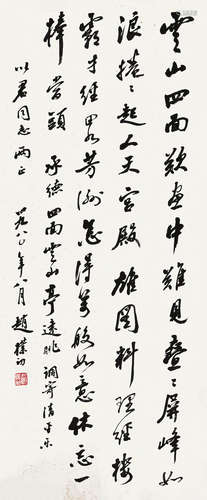 雲山四面歎畫中難見疊々屏峰如
浪捲々起人天宮殿雄圖料理經樓
霸才經畧芳洲怎得萬般如意休忘一
棒當頭 承德四面雲山亭遠眺調寄清平樂
以君同志兩正 一九八〇年八月 趙樸初